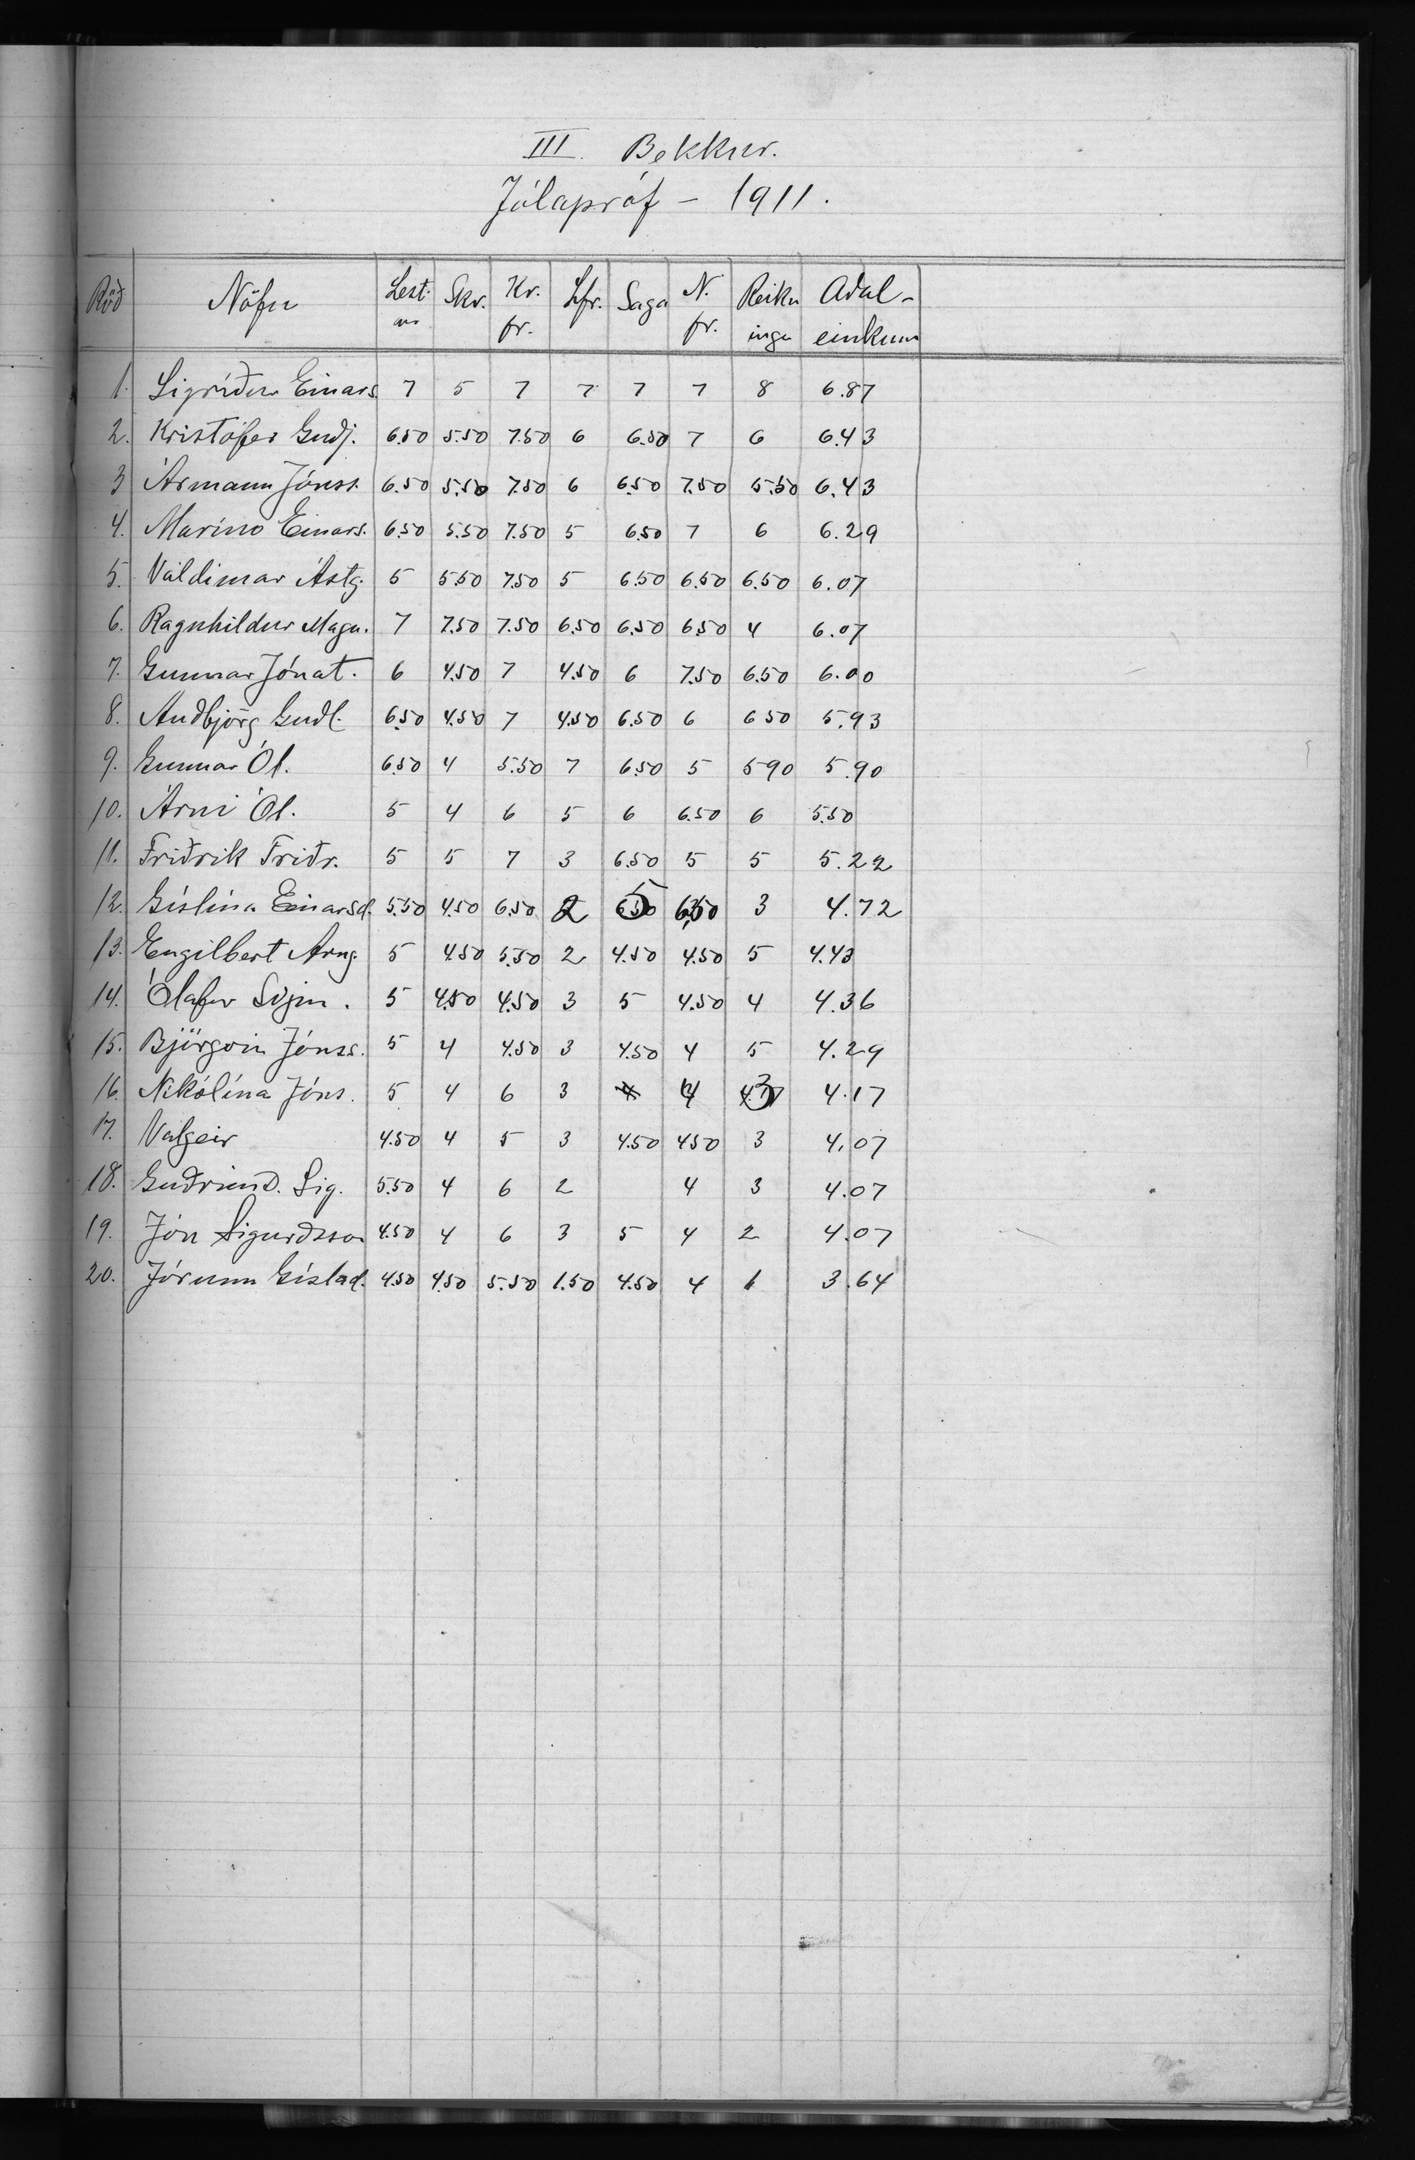 III. Bekkur.
Jólapróf – 1911.
Röð Nöfn Lest. Skr. Kr. fr. Lfr. Saga N. fr. Reikn inga Aðal- einkunn
1. Sigríður Einars. 7 5 7 7 7 7 8 6.87
2. Kristófer Guðj. 6.50 5.50 7.50 6 6.50 7 6 6.43
3 Ármann Jónss. 6.50 5.50 7.50 6 6.50 7.50 5.50 6.43
4. Marinó Einars. 6.50 5.50 7.50 5 6.50 7 6 6.29
5. Valdimar Ástg. 5 5.50 7.50 5 6.50 6.50 6.50 6.07
6. Ragnhildur Magn. 7 7.50 7.50 6.50 6.50 6.50 4 6.07
7. Gunnar Jónat. 6 4.50 7 4.50 6 7.50 6.50 6.00
8. Auðbjörg Guðl. 6.50 4.50 7 4.50 6.50 6 6 50 5.93
9. Gunnar Ól. 6.50 4 5.50 7 6.50 5 5 90 5.90
10. Árni Ól. 5 4 6 5 6 6.50 6 5.50
11. Friðrik Friðr. 5 5 7 3 6.50 5 5 5.22
12. Gíslína Einarsd. 5.50 4.50 6.50 2 5 6.50 3 4.72
13. Engilbert Arng. 5 4.50 5.50 2 4.50 4.50 5 4.43
14. Ólafur 5 4.50 4.50 3 5 4.50 4 4.36
15. Björgvin Jónss. 5 4 4.50 3 4.50 4 5 4.29
16. Nikólína Jóns. 5 4 6 3 4 4 3 4.17
17. Valgeir 4.50 4 5 3 4.50 4 50 3 4.07
18. Guðmund. Sig. 5.50 4 6 2 4 3 4.07
19. Jón Sigurðsson 4.50 4 6 3 5 4 2 4.07
20. Jórunn Gíslad. 4.50 4.50 5.50 1.50 4.50 4 1 3.64